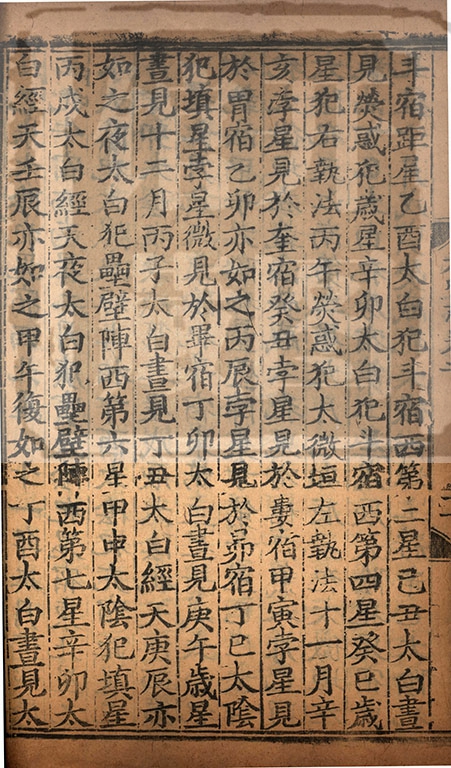 斗宿距星乙酉太白犯斗宿西第二星己丑太白晝
見熒惑犯歲星辛卯太白犯斗宿西第四星癸巳歲
星犯右執法丙午熒惑犯大微垣左執法十一月辛
亥孛星見於奎宿癸丑孛星見於婁宿甲寅孛星見
於胃宿乙卯亦如之丙辰孛星見於昴宿丁巳太陰
犯塡星孛星微見於畢宿丁卯太白晝見庚午歲星
晝見十二月丙子太白晝見丁丑太白經天庚辰亦
如之夜太白犯壘壁陣西第六星甲申太陰犯塡星
丙戌太白經天夜太白犯壘壁陣西第七星辛卯太
白經天壬辰亦如之甲午復如之丁酉太白晝見太